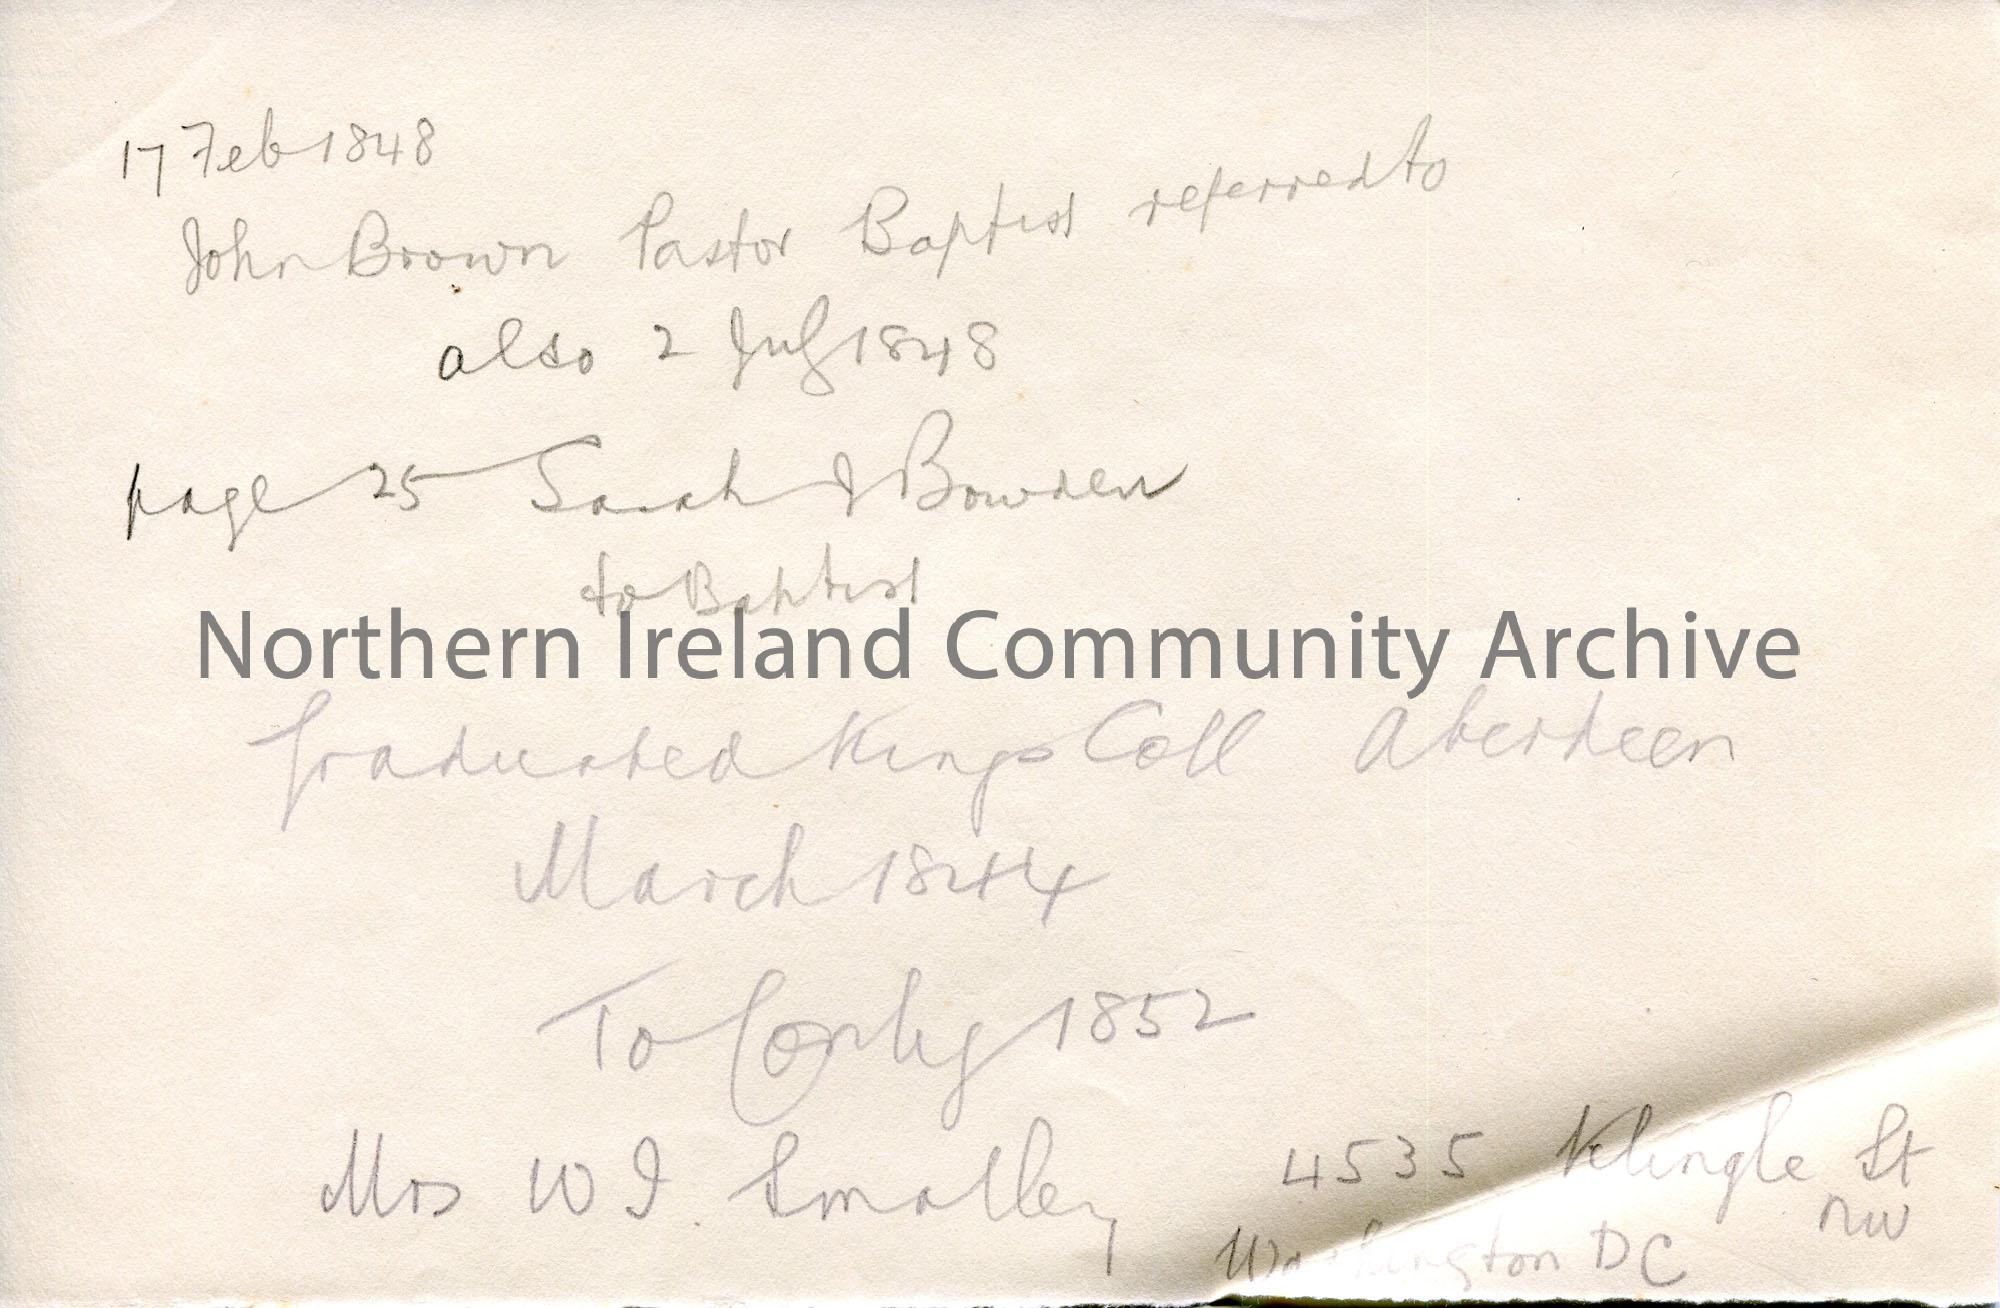 17 Feb 1848
John Brown Pastor Baptist referred to
also 2 July 1848
page 25 Sarah J Bowden
to Baptist
Northern Ireland Community Archive
Graduated Kings Coll Aberdeen
March 1844
To Conlig 1852
Mrs W J Smalley 4535 Klingle St
NW
Washington DC